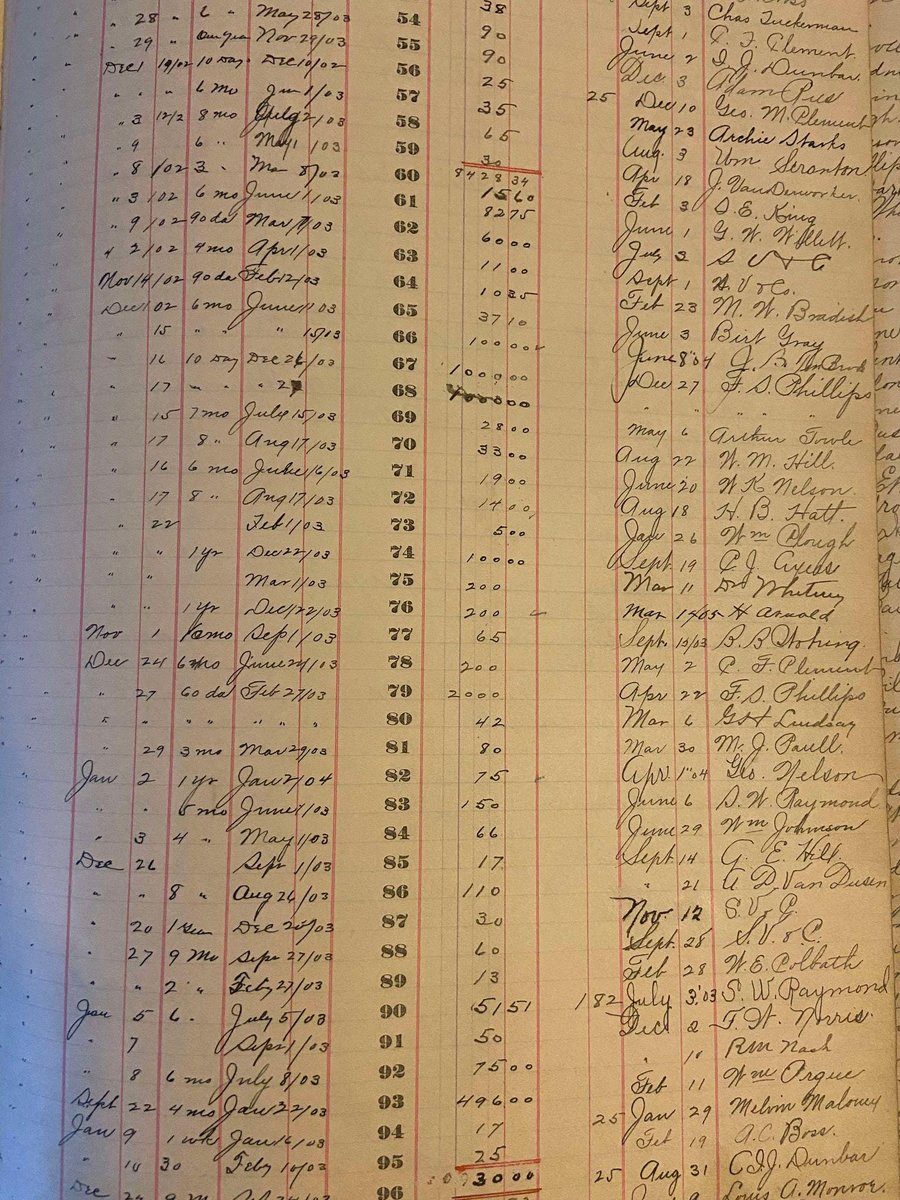 " 28 " 6 " May 28/03 54 38 Sept 3 Chas Tuckerman
" 29 " Nov 29/03 55 90 Sept 1 C. F. Clement
Dec 1 19/02 10 Day Dec 10/02 56 90 June 2 G. J. Dunbar
" " " 6 mo Jun 1/03 57 25 Dec 3 Adam
" 3 12/2 8 mo 2/03 58 35 25 Dec 10 Geo. M. Clement
" 9 6 " May 1/03 59 65 May 23 Archie Starks
" 8 1/02 3 " Mar 8/03 60 30 Aug. 3 Wm Scranton
8428 34 Apr 18 J. Vandenworker
" 3/02 6 mo June 1/03 61 15 60 Feb 3 S. E. King
" 9/02 90 da Mar 9/03 62 82 75 June 1 G. W. Willett.
" 2/02 4 mo Apr 1/03 63 60 00 July 3 S V & C
Nov 14/02 90 da Feb 12/03 64 11 00 Sept 1 S. V & Co.
Dec 1 02 6 mo June 1/03 65 10 35 Feb 23 M. W. Bradish
" 15 " " " 15/03 66 37 10 June 3 Birt Gray
" 16 10 Day Dec 26/03 67 100 00 June 8 "04 J. B.
" 17 " " " 27 68 1000 00 Dec 27 F. S. Phillips
" 15 7 mo July 15/03 69 " " " "
" 17 8 " Aug 17/03 70 28 00 May 6 Arthur Towle
" 16 6 mo June 16/03 71 33 00 Aug 22 W. M. Hill.
" 17 8 " Aug 17/03 72 19 00 June 20 W K Nelson.
" 22 Feb 1/03 73 14 00 Aug 18 H. B. Hatt.
" " 1 yr Dec 22/03 74 5 00 Jan 26 Wm Plough
" " Mar 1/03 75 100 00 Sept. 19 C. J. Ayers
" " 1 yr Dec 22/03 76 200 Mar 11 Dr Whitney
Nov 1 mo Sep 1/03 77 200 Mar 1905 H Arnold
Dec 24 6 mo June 24/03 78 65 Sept. 19/03 B. B.
" 27 60 da Feb 27/03 79 200 May 2 C. F. Clement
" " " " " " 80 2000 Apr 22 F. S. Phillips
" 29 3 mo Mar 29/03 81 42 Mar 6 G H Lindsay
Jan 2 1 yr Jan 2/04 82 80 Mar 30 M. J. Paull.
" " 5 mo June 1/03 83 75 Apr 1 "04 Geo. Nelson
" 3 4 " May 1/03 84 150 June 6 S. W. Raymond
Dec 26 Sept 1/03 85 66 June 29 Wm Johnson
" " 8 " Aug 26/03 86 17 Sept. 14 G. E. Hill
" 20 1 Year Dec 20/03 87 110 " 21 A. D. Van Dusen
" 27 9 Mo Sepr 27/03 88 30 Nov 12 S. V. C.
" " 2 " Feby 27/03 89 60 Sept. 28 S. V. & C.
Jan 5 6 . July 5/03 90 13 Feb 28 W. E. Colbath
" 7 Sepr 1/03 91 51 51 1 82 July 3 '03 S. W. Raymond
" 8 6 mo July 8/03 92 50 Dec 2 T. H. Norris.
Sept 22 4 mo Jan 22/03 93 75 00 " 10 R M Nash
Jan 9 1 wk Jan 16/03 94 496 00 Feb 11 Wm Argue
" 10 30 Feby 10/03 95 17 25 Jan 29 Melvin Maloney
25 Feb 19 A. C. Boss.
Dec 96 30 00 25 Aug 31 C. J. J. Dunbar
9 Louis A. Monroe